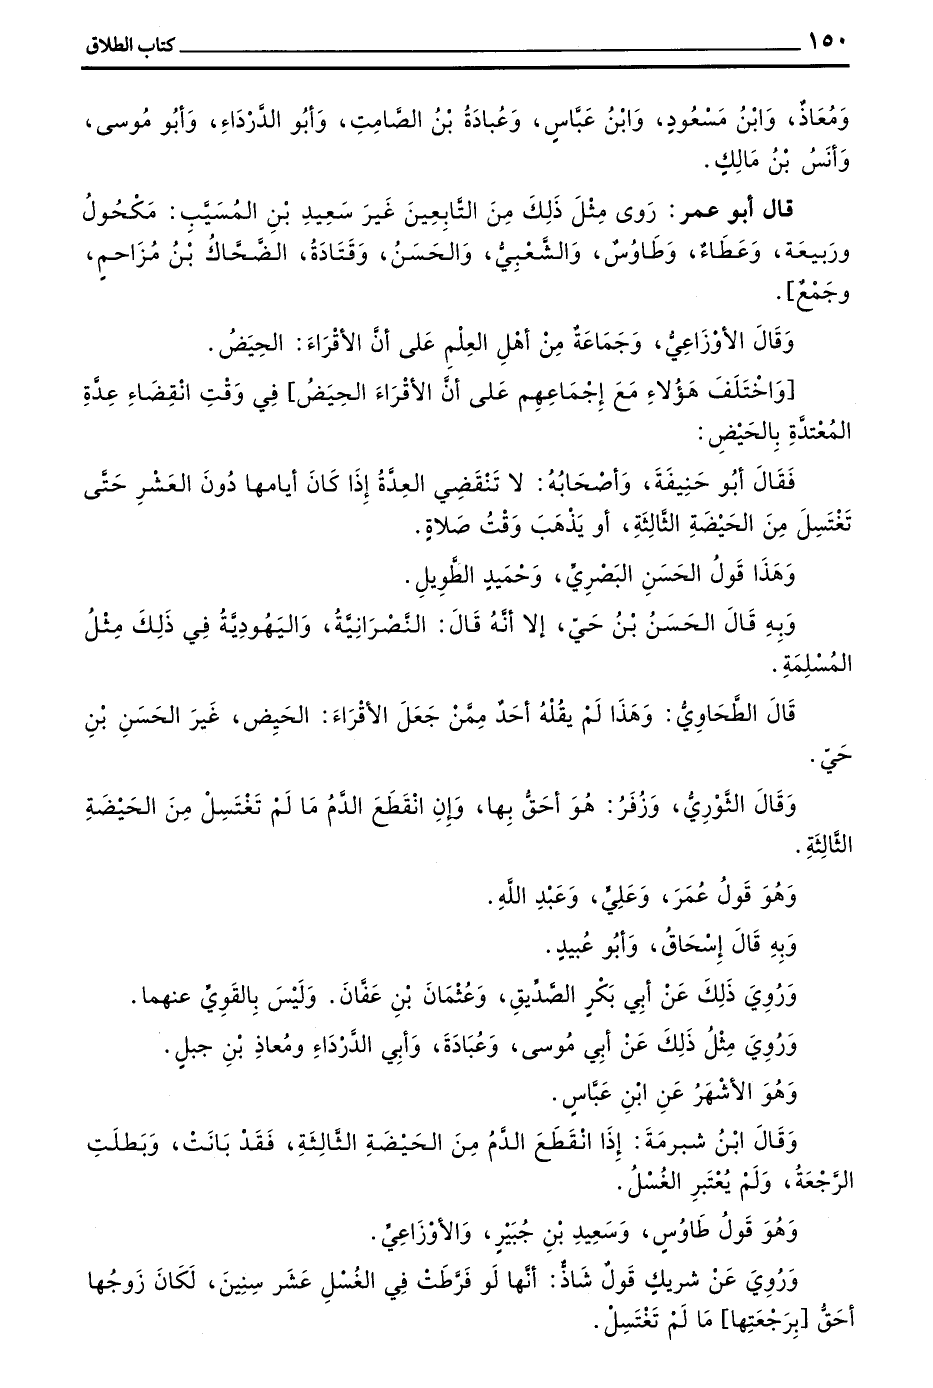 ١٥٠ كتاب الطلاق
وَمُعَاذٌ، وَابْنُ مَسْعُودٍ، وَابْنُ عَبَّاسٍ، وَعُبادَةُ بْنُ الصَّامِتِ، وَأَبُو الدَّرْدَاءِ، وَأَبُو مُوسى،
وَأَنَسُ بْنُ مَالِكٍ.
قال أبو عمر: رَوى مِثْلَ ذَلِكَ مِنَ التَّابِعِينَ غَيرَ سَعِيدِ بْنِ المُسَيَّبِ: مَكْحُولُ
وربَيعَة، وَعَطَاءٌ، وَطَاوُسٌ، وَالشَّعْبِيُّ، وَالحَسَنُ، وَقَتَادَةُ، الضَّحَّاكُ بْنُ مُزَاحمٍ،
وجَمْعٌ].
وَقَالَ الأَوْزَاعِيُّ، وَجَمَاعَةٌ مِنْ أَهْلِ العِلْمِ عَلى أنَّ الأقْرَاءَ: الحِيَضُ.
[وَاخْتَلَفَ هَؤُلاءِ مَعَ إِجْمَاعِهِم عَلى أنَّ الأقْرَاءَ الحِيَضُ] فِي وَقْتِ انْقِضَاءِ عِدَّةِ
المُعْتدَّةِ بِالحَيْضِ:
فَقَالَ أَبُو حَنِيفَةَ، وَأَصْحَابُهُ: لا تَنْقَضِي العِدَّةُ إِذَا كَانَ أيامها دُونَ العَشْرِ حَتَّى
تَغْتَسِلَ مِنَ الحَيْضَةِ الثَّالِثَةِ، أو يَذْهَبَ وَقْتُ صَلاةٍ.
وَهَذَا قَولُ الحَسَنِ البَصْرِيِّ، وَحُمَيدٍ الطَّوِيلِ.
وَبِهِ قَالَ الحَسَنُ بْنُ حَيّ، إلا أنَّهُ قَالَ: النَّصْرَانِيَّةُ، وَاليَهُودِيَّةُ فِي ذَلِكَ مِثْلُ
المُسْلِمَةِ.
قَالَ الطَّحَاوِيُّ: وَهَذَا لَمْ يقُلْهُ أحَدٌ مِمَّنْ جَعَلَ الأقْرَاءَ: الحَيِض، غَيرَ الحَسَنِ بْنِ
حَيّ.
وَقَالَ الثَّوْرِيُّ، وَزُفَرُ: هُوَ أحَقُّ بِها، وَإِنِ انْقَطَعَ الدَّمُ مَا لَمْ تَغْتَسِلْ مِنَ الحَيْضَةِ
الثَّالِثَةِ.
وَهُوَ قَولُ عُمَرَ، وَعَلِيٍّ، وَعَبْدِ اللَّهِ.
وَبِهِ قَالَ إِسْحَاقُ، وَأَبُو عُبيدٍ.
وَرُوِيَ ذَلِكَ عَنْ أَبِي بَكْرٍ الصِّدِّيقِ، وَعُثْمَانَ بْنِ عَفَّانَ. وَلَيْسَ بِالقَوِيِّ عنهما.
وَرُوِيَ مِثْلُ ذَلِكَ عَنْ أبي مُوسى، وَعُبَادَةَ، وَأبي الدَّرْدَاءِ ومُعاذِ بْنِ جبلٍ.
وَهُوَ الأشْهَرُ عَنِ ابْنِ عَبَّاسٍ.
وَقَالَ ابْنُ شبرمَةَ: إِذَا انْقَطَعَ الدَّمُ مِنَ الحَيْضَةِ الثَّالِثَةِ، فَقَدْ بَانَتْ، وَبَطلَتِ
الرَّجْعَةُ، وَلَمْ يُعْتَبَرِ الغُسْلُ.
وَهُوَ قَولُ طَاوُسٍ، وَسَعِيدِ بْنِ جُبَيْرٍ، وَالأوْزَاعِيِّ.
وَرُوِيَ عَنْ شريكٍ قَولٌ شَاذٌّ: أنَّها لَو فَرَّطَتْ فِي الغُسْلِ عَشَر سِنِينَ، لَكَانَ زَوجُها
أحَقُّ [بِرَجْعَتِها] مَا لَمْ تَغْتَسِلْ.